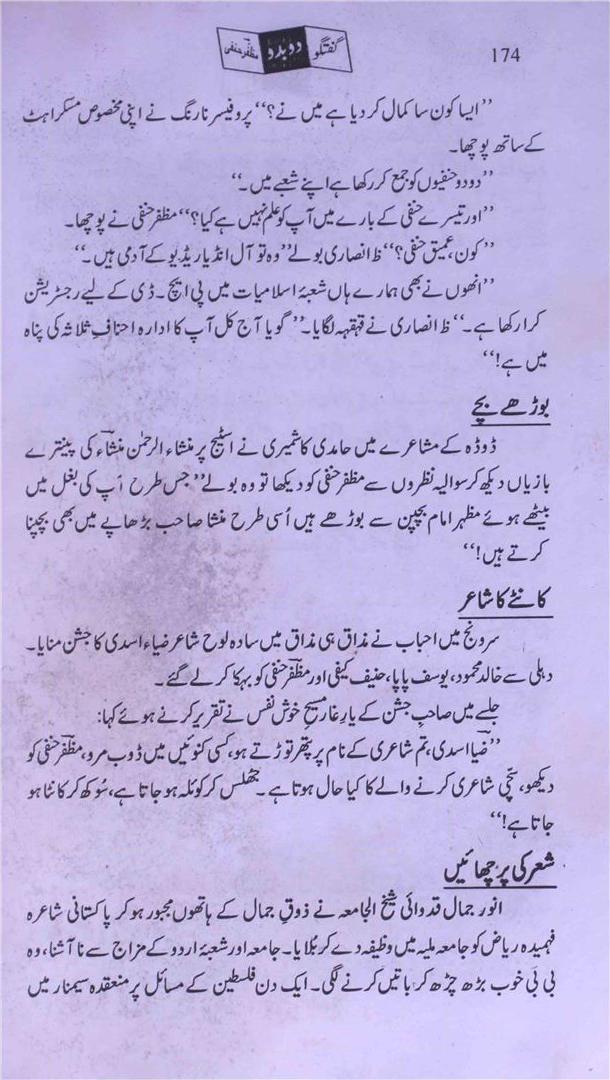 گفتگو دوبدو مظفر حنفی
174
’’ایسا کون سا کمال کر دیا ہے میں نے؟‘‘ پروفیسر نارنگ نے اپنی مخصوص مسکراہٹ
کے ساتھ پوچھا۔
’’دو دو حنفیوں کو جمع کر رکھا ہے اپنے شعبے میں۔‘‘
’’اور تیسرے حنفی کے بارے میں آپ کو علم نہیں ہے کیا؟‘‘ مظفر حنفی نے پوچھا۔
’’کون، عمیق حنفی؟‘‘ ظ انصاری بولے ’’وہ تو آل انڈیا ریڈیو کے آدمی ہیں۔‘‘
’’انھوں نے بھی ہمارے ہاں شعبۂ اسلامیات میں پی ایچ۔ ڈی کے لیے رجسٹریشن
کرا رکھا ہے۔‘‘ ظ انصاری نے قہقہہ لگایا۔ ’’گویا آج کل آپ کا ادارہ احنافِ ثلاثہ کی پناہ
میں ہے!‘‘
بوڑھے بچے
ڈوڈہ کے مشاعرے میں حامدی کاشمیری نے اسٹیج پر منشاء الرحمٰن منشاؔء کی پینترے
بازیاں دیکھ کر سوالیہ نظروں سے مظفر حنفی کو دیکھا تو وہ بولے ’’جس طرح آپ کی بغل میں
بیٹھے ہوئے مظہر امام بچپن سے بوڑھے ہیں اُسی طرح منشا صاحب بڑھاپے میں بھی بچپنا
کرتے ہیں!‘‘
کانٹے کا شاعر
سرونج میں احباب نے مذاق ہی مذاق میں سادہ لوح شاعر ضیاء اسدی کا جشن منایا۔
دہلی سے خالد محمود، یوسف پاپا، حنیف کیفی اور مظفر حنفی کو بہکا کر لے گئے۔
جلسے میں صاحب جشن کے یارِ غار مسیح خوش نفس نے تقریر کرتے ہوئے کہا:
’’ضیا اسدی، تم شاعری کے نام پر پتھر توڑتے ہو، کسی کنوئیں میں ڈوب مرو، مظفر حنفی کو
دیکھو، سچّی شاعری کرنے والے کا کیا حال ہوتا ہے۔ جُھلس کر کوئلہ ہو جاتا ہے، سُوکھ کر کانٹا ہو
جاتا ہے!‘‘
شعر کی پرچھائیں
انور جمال قدوائی شیخ الجامعہ نے ذوقِ جمال کے ہاتھوں مجبور ہو کر پاکستانی شاعرہ
فہمیدہ ریاض کو جامعہ ملیہ میں وظیفہ دے کر بُلایا۔ جامعہ اور شعبۂ اردو کے مزاج سے نا آشنا، وہ
بی بی خوب بڑھ چڑھ کر باتیں کرنے لگی۔ ایک دن فلسطین کے مسائل پر منعقدہ سیمنار میں